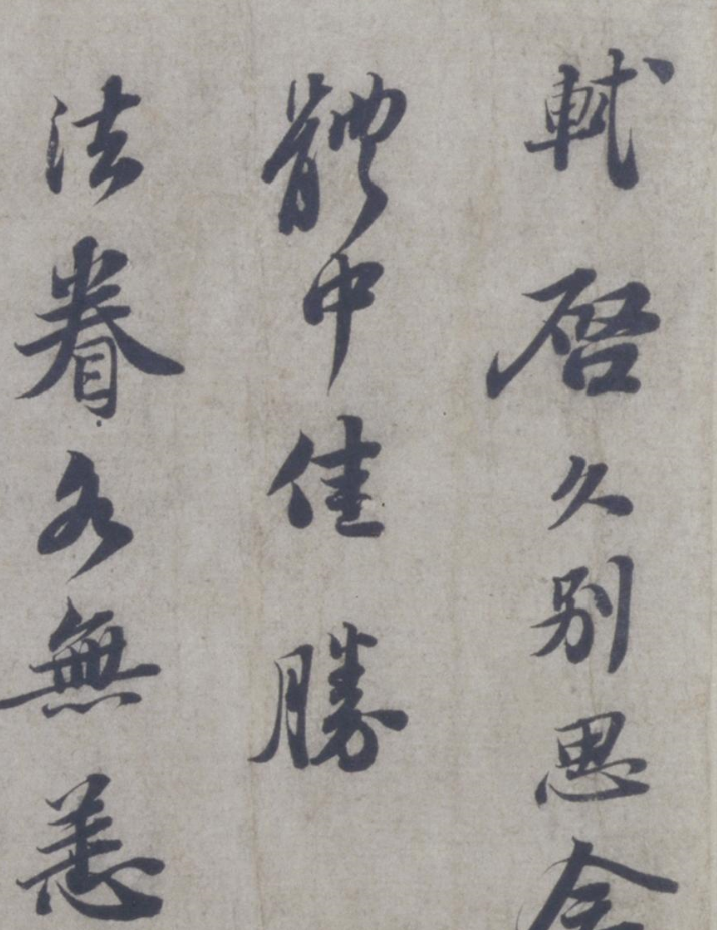 軾啓久別思
體中佳勝
法眷各無恙